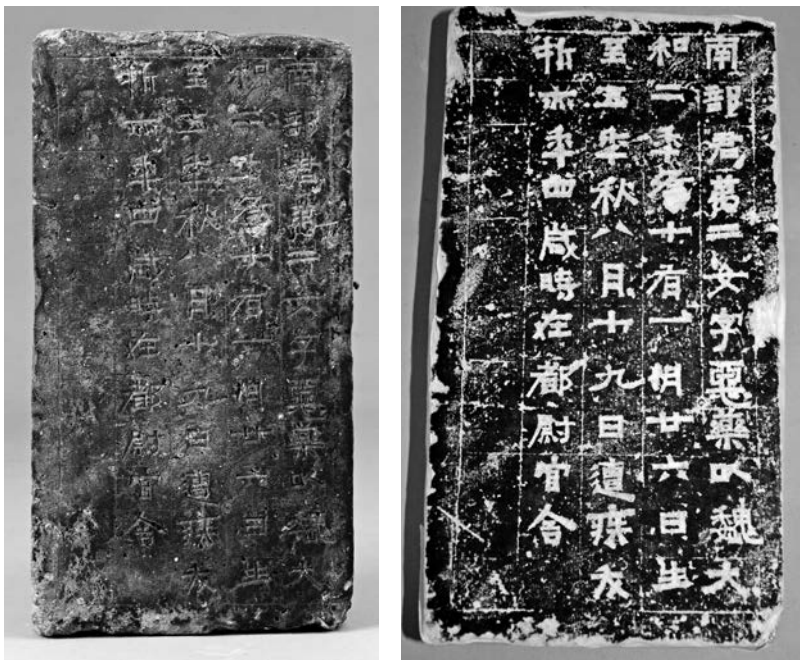 南部君二女字惡藥以魏大
和二年冬十有一月廿六日生
至五年秋八月十九日遘疾夭
折年四歲時在都尉官舍
南部君二女字惡藥以魏大
和二年冬十有一月廿六日生
至五年秋八月十九日遘疾夭
折年四歲時在都尉官舍